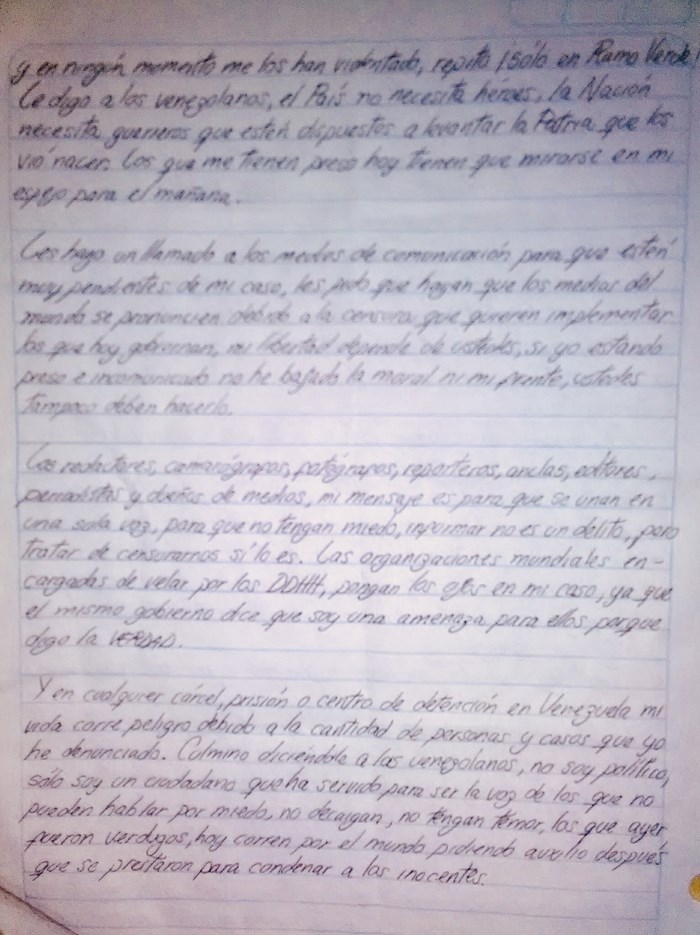 y en ningún momento me los han violentado, repito ¡Sólo en Ramo Verde!
Le digo a los venezolanos, el País no necesita héroes, la Nación
necesita guerreros que estén dispuestos a levantar la Patria que los
vió nacer. Los que me tienen preso hoy tienen que mirarse en mi
espejo para el mañana.

Les hago un llamado a los medios de comunicación para que estén
muy pendientes de mi caso, les pido que hagan que los medios del
mundo se pronuncien debido a la censura que quieren implementar
los que hoy gobiernan, mi libertad depende de ustedes, si yo estando
preso e incomunicado no he bajado la moral ni mi frente, ustedes
tampoco deben hacerlo.

Los redactores, camarógrafos, fotógrafos, reporteros, anclas, editores,
periodistas y dueños de medios, mi mensaje es para que se unan en
una sola voz, para que no tengan miedo, informar no es un delito, pero
tratar de censurarnos si lo es. Las organizaciones mundiales en-
cargadas de velar por los DDHH, pongan los ojos en mi caso, ya que
el mismo gobierno dice que soy una amenaza para ellos porque
digo la VERDAD.

Y en cualquier cárcel, prisión o centro de detención en Venezuela mi
vida corre peligro debido a la cantidad de personas y casos que yo
he denunciado. Culmino diciéndole a los venezolanos, no soy político,
sólo soy un ciudadano que ha servido para ser la voz de los que no
pueden hablar por miedo, no decaigan, no tengan temor, los que ayer
fueron verdugos, hoy corren por el mundo pidiendo auxilio después
que se prestaron para condenar a los inocentes.